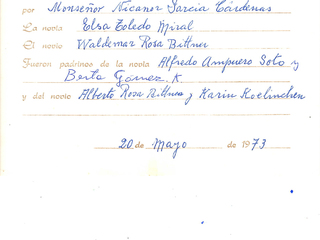 por Monseñor Nicanor Garcia Cárdenas
La novia Elsa Toledo Miral
El novio Waldemar Rosa Bittner
Fueron padrinos de la novia Alfredo Ampuero Soto y
Berta Gómez K.
y del novio Alberto Rosa Bittner y Karin Hoelmchen
20 de Mayo de 1973